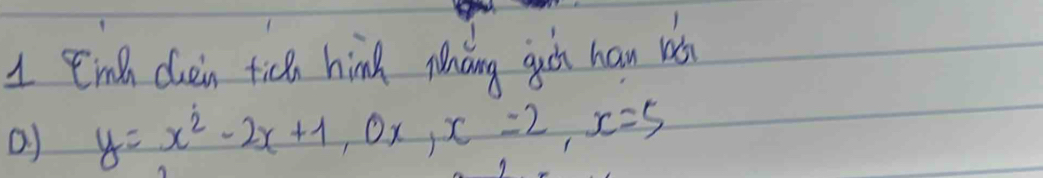 1 Tính diện tích hình phẳng giới hạn bởi
a) y = x² - 2x + 1, Ox, x = 2, x = 5